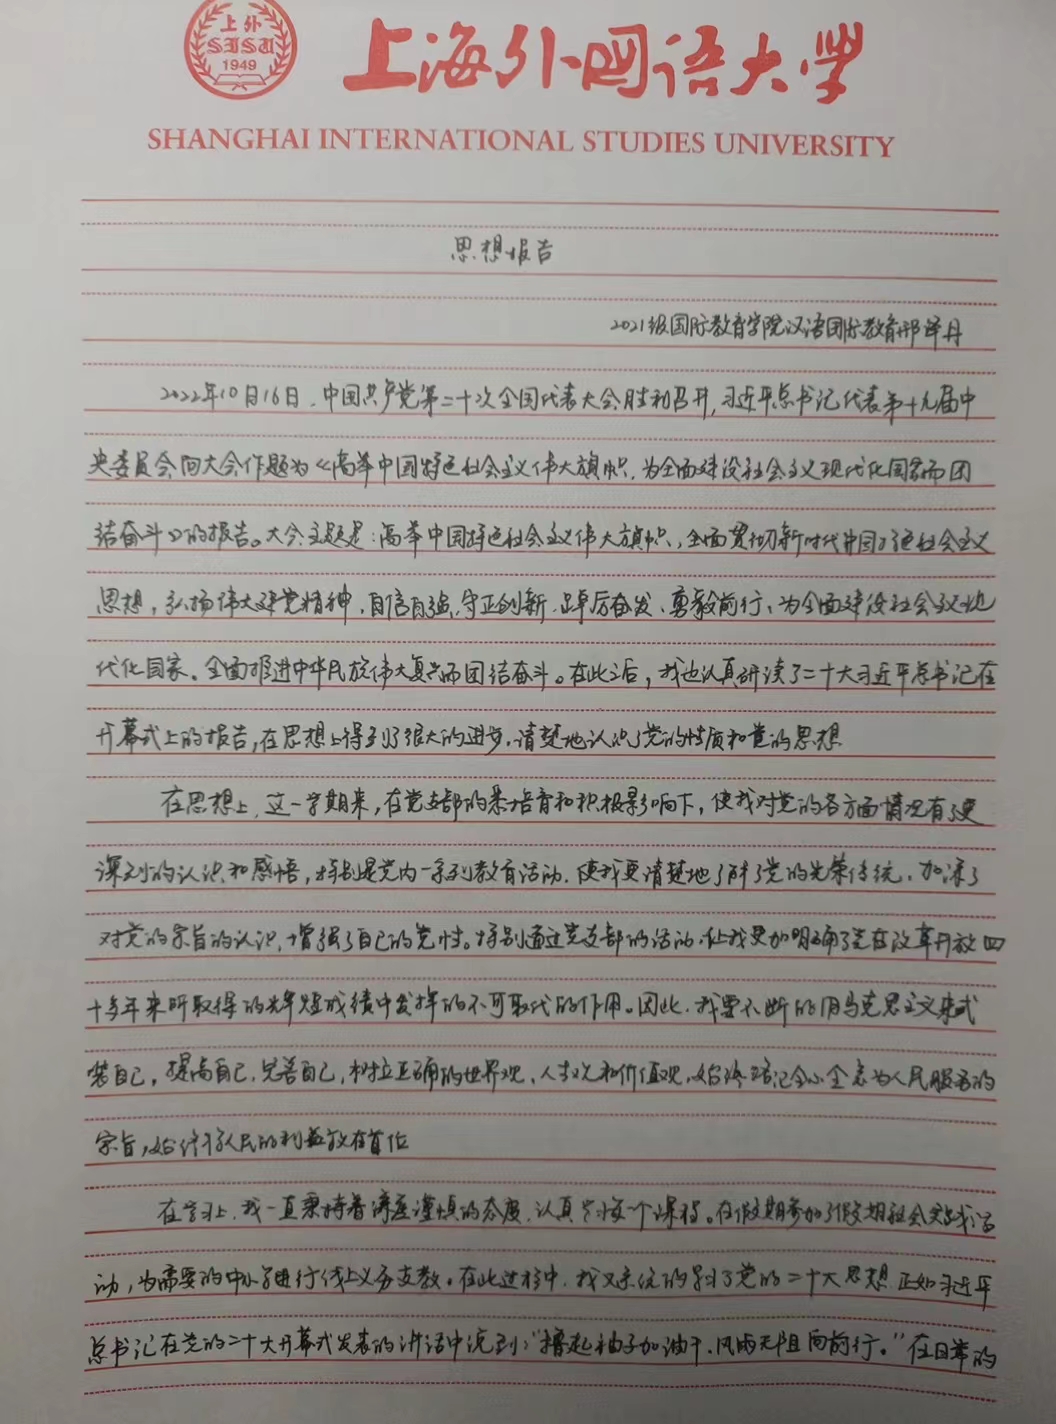 上外
SISU
1949
上海外国语大学
SHANGHAI INTERNATIONAL STUDIES UNIVERSITY
思想报告
2021级国际教育学院汉语国际教育邢译丹
2022年10月16日，中国共产党第二十次全国代表大会胜利召开，习近平总书记代表第十九届中
央委员会向大会作题为《高举中国特色社会主义伟大旗帜，为全面建设社会主义现代化国家而团
结奋斗》的报告。大会主题是：高举中国特色社会主义伟大旗帜，全面贯彻新时代中国特色社会主义
思想，弘扬伟大建党精神，自信自强、守正创新，踔厉奋发、勇毅前行，为全面建设社会主义现
代化国家、全面推进中华民族伟大复兴而团结奋斗。在此之后，我也认真研读了二十大习近平总书记在
开幕式上的报告，在思想上得到了很大的进步，清楚地认识了党的性质和党的思想
在思想上，这一学期来，在党支部的悉培育和积极影响下，使我对党的各方面情况有了更
深刻的认识和感悟，特别是党内一系列教育活动，使我更清楚地了解了党的光荣传统，加深了
对党的宗旨的认识，增强了自己的党性。特别通过党支部的活动，让我更加明确了党在改革开放四
十多年来所取得的辉煌成绩中发挥的不可取代的作用。因此，我要不断的用马克思主义来武
装自己，提高自己，完善自己，树立正确的世界观、人生观和价值观，始终牢记全心全意为人民服务的
宗旨，始终将人民的利益放在首位
在学习上，我一直秉持着谨慎的态度，认真完成每个课程。在假期参加了假期社会实践活
动，为需要的中小学进行线上义务支教。在此过程中，我又系统的学习了党的二十大思想，正如习近平
总书记在党的二十大开幕式发表的讲话中说到：“撸起袖子加油干、风雨无阻向前行。”在日常的